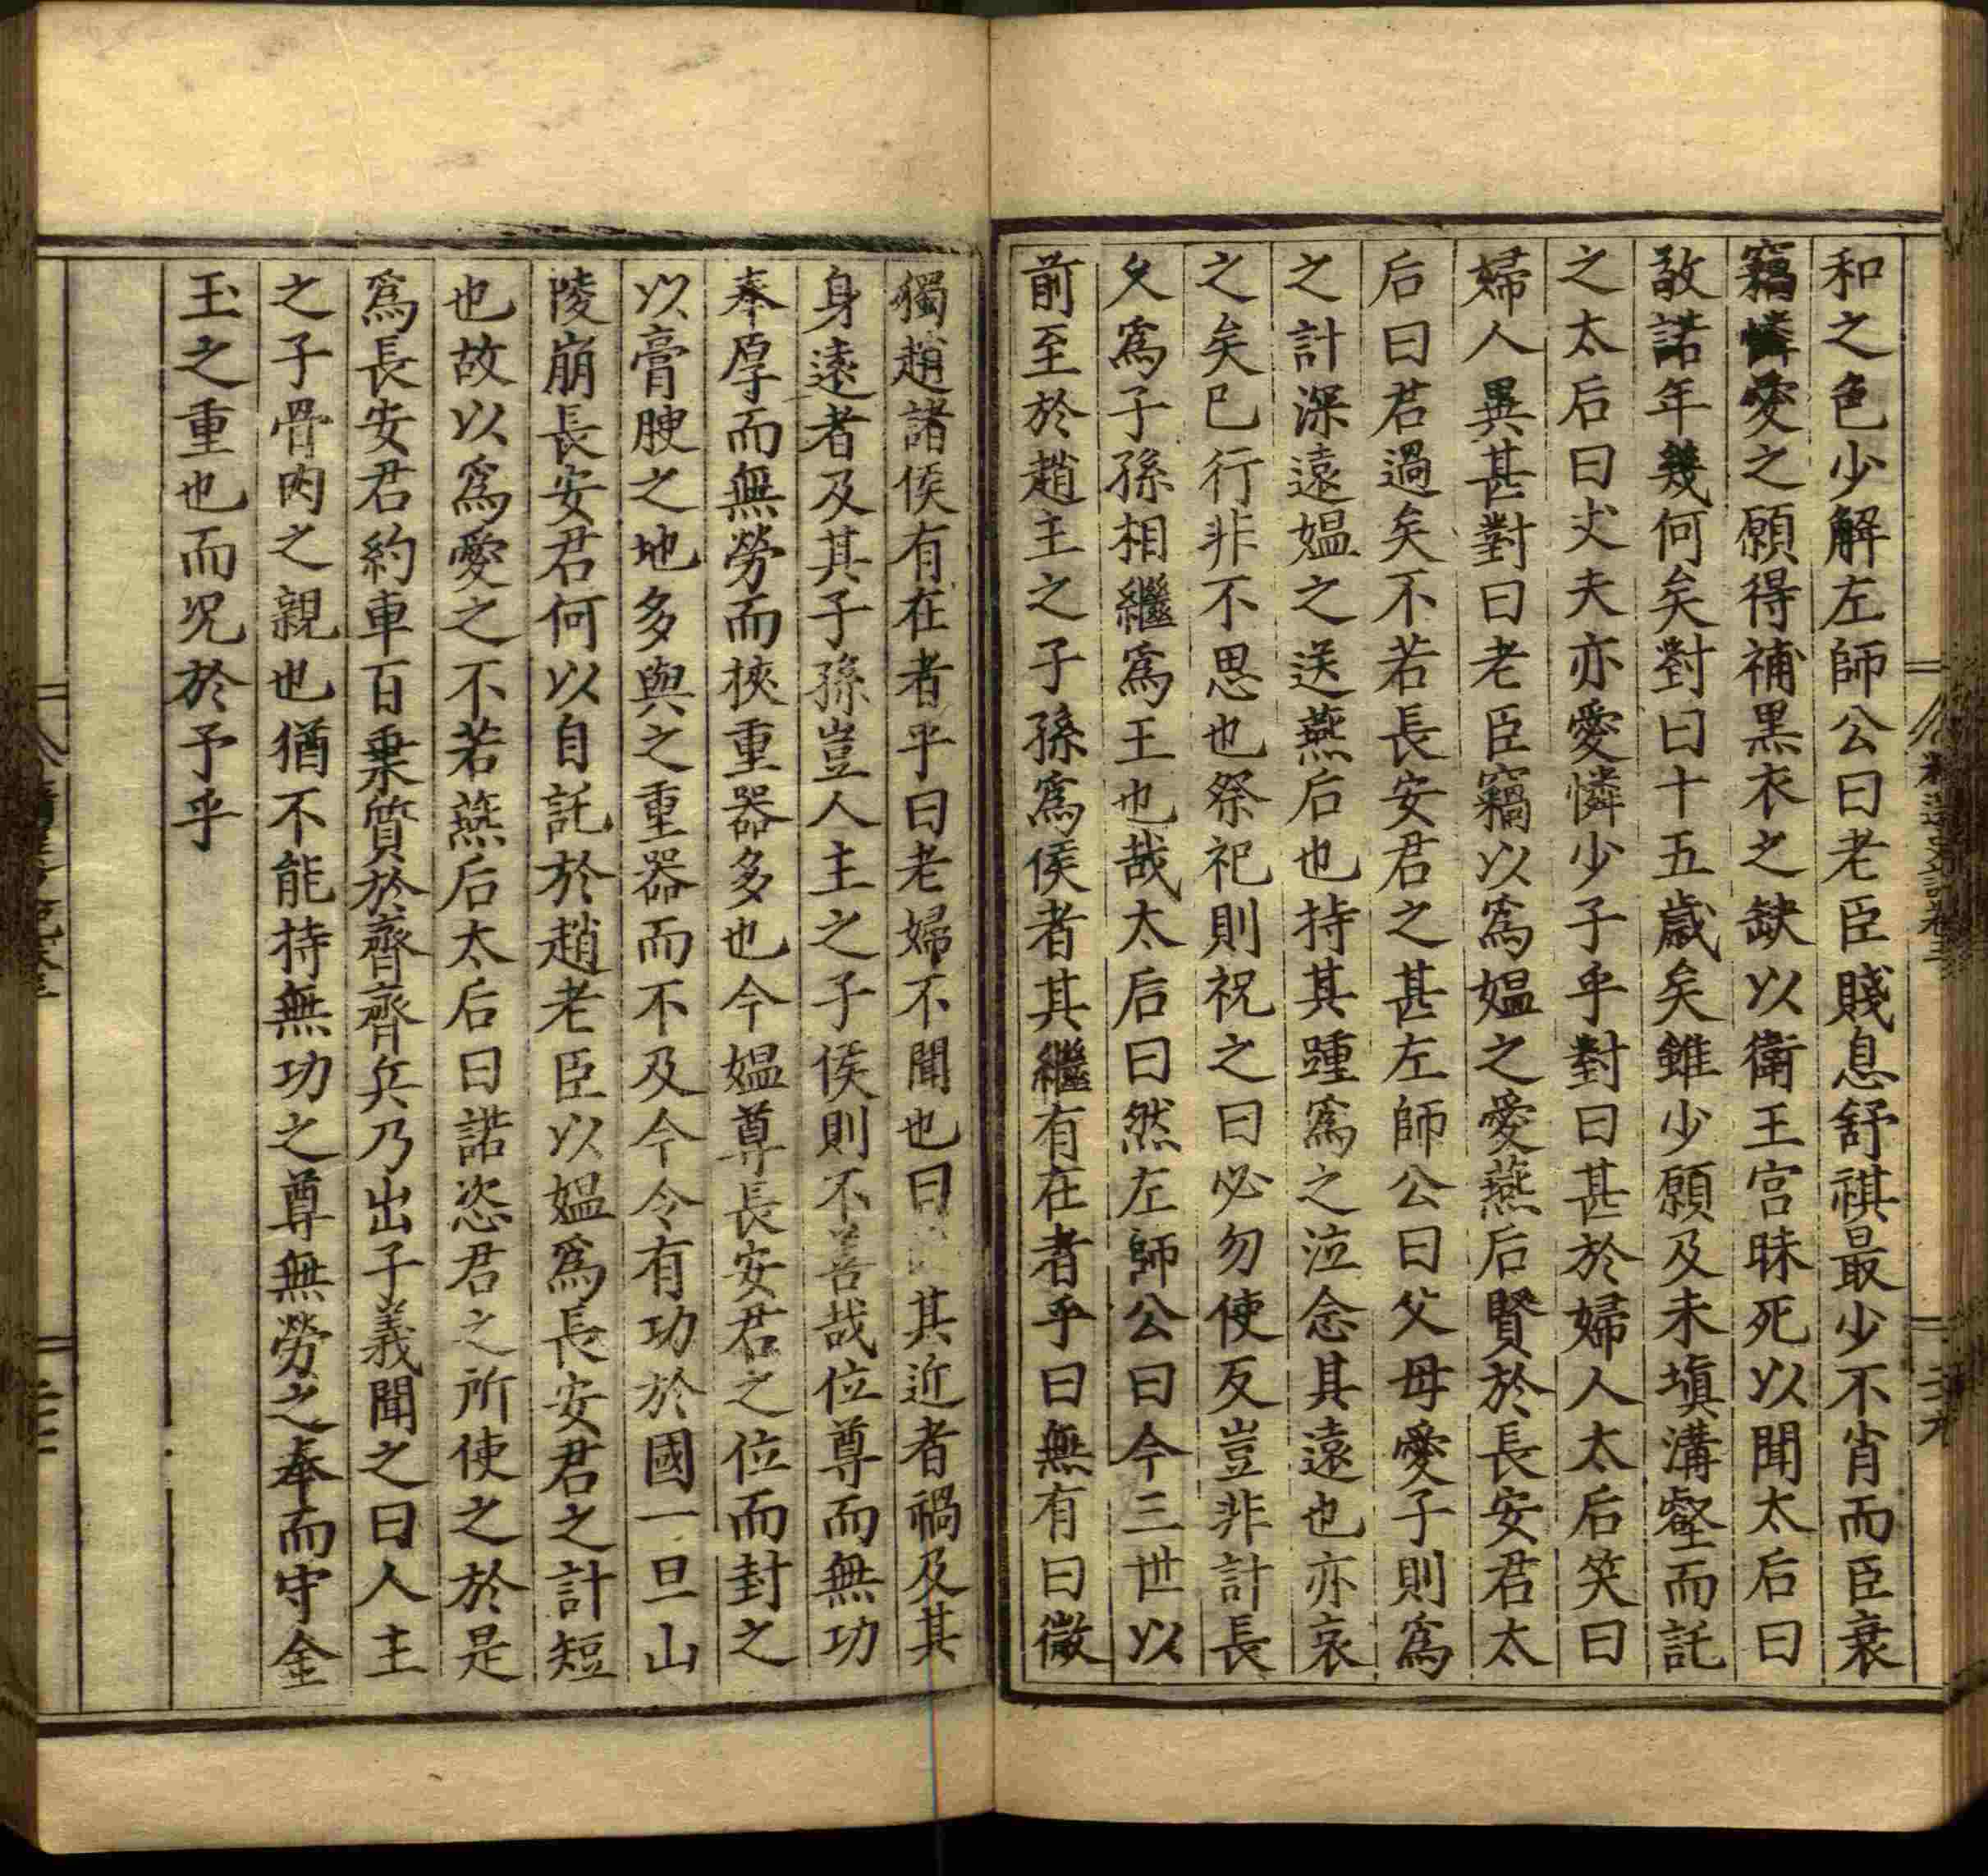 和之色少解左師公曰老臣賤息舒祺最少不肖而臣衰
竊憐愛之願得補黑衣之缺以衛王宮昧死以聞太后曰
敬諾年幾何矣對曰十五歲矣雖少願及未塡溝壑而託
之太后曰丈夫亦愛憐少子乎對曰甚於婦人太后笑曰
婦人異甚對曰老臣竊以爲媼之愛燕后賢於長安君太
后曰君過矣不若長安君之甚左師公曰父母愛子則爲
之計深遠媼之送燕后也持其踵爲之泣念其遠也亦哀
之矣已行非不思也祭祀則祝之曰必勿使反豈非計長
久爲子孫相繼爲王也哉太后曰然左師公曰今三世以
前至於趙主之子孫爲侯者其繼有在者乎曰無有曰微
獨趙諸侯有在者乎曰老婦不聞也曰其近者禍及其
身遠者及其子孫豈人主之子侯則不善哉位尊而無功
奉厚而無勞而挾重器多也今媼尊長安君之位而封之
以膏腴之地多與之重器而不及今令有功於國一旦山
陵崩長安君何以自託於趙老臣以媼爲長安君之計短
也故以爲愛之不若燕后太后曰諾恣君之所使之於是
爲長安君約車百乗質於齊齊兵乃出子義聞之曰人主
之子骨肉之親也猶不能持無功之尊無勞之奉而守金
玉之重也而况於予乎